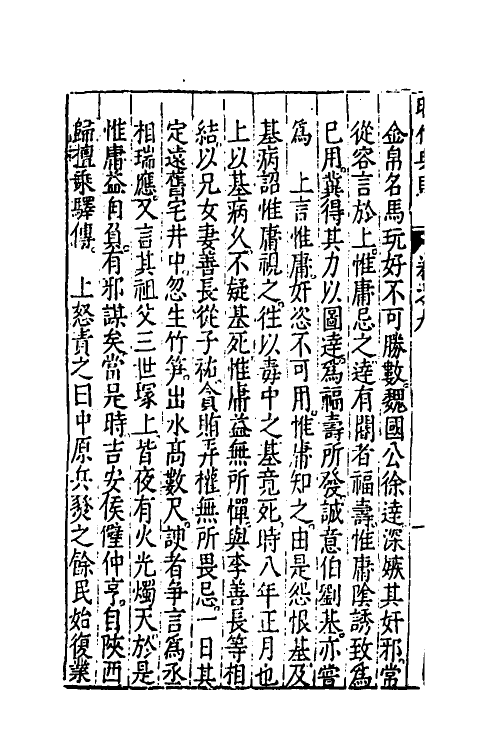 金帛名馬玩好不可勝數。魏國公徐達深嫉其奸邪。常
從容言於上。惟庸忌之。達有閽者福壽。惟庸陰誘致爲
已用。冀得其力以圖達。爲福壽所發。誠意伯劉基。亦嘗
爲　上言惟庸奸恣不可用。惟庸知之。由是怨恨基。及
基病。詔惟庸視之。徃以毒中之。基竟死。時八年正月也
上以基病久。不疑基死。惟庸益無所憚。與李善長等相
結。以兄女妻善長從子祐。貪賄弄權。無所畏忌。一日其
定遠舊宅井中。忽生竹笋。出水高數尺。諛者爭言爲丞
相瑞應。又言其祖父三世塚上。皆夜有火光燭天。於是
惟庸益自負。有邪謀矣。當是時吉安侯陸仲亨。自陝西
歸。擅乘驛傳。　上怒責之曰。中原兵燹之餘。民始復業